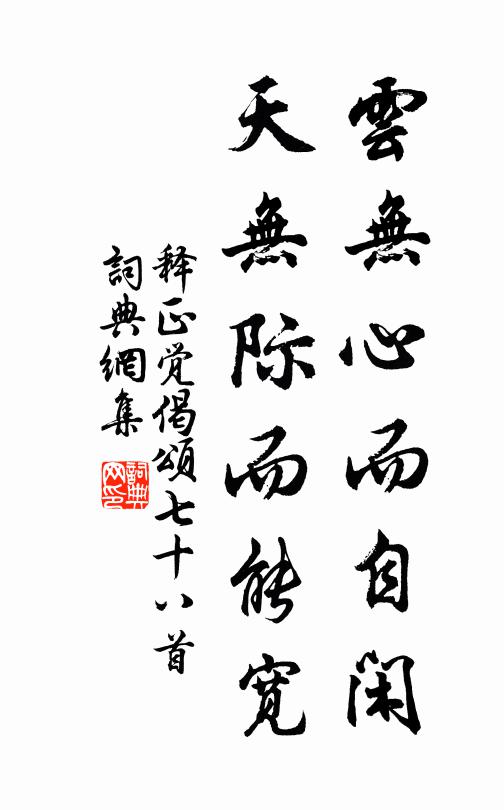 雲無心而自閑
天無际而能寬
释正觉偈頌七十八首
詞典網集
詞典网印